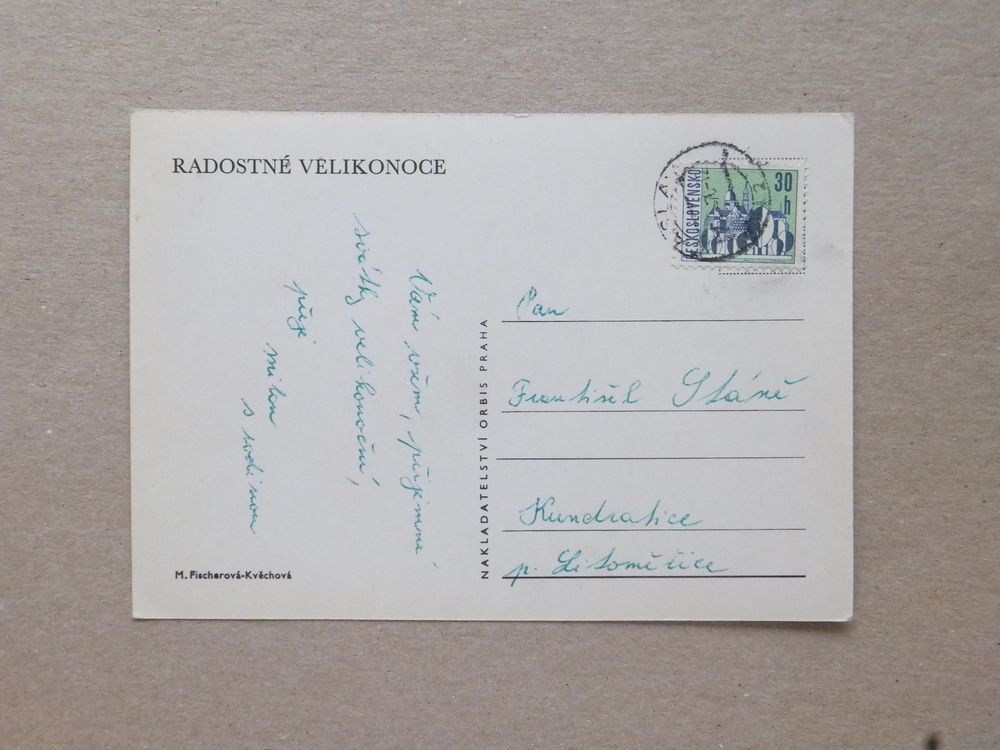 RADOSTNÉ VELIKONOCE
Vám všem, příjemné
svátky velikonoční,
přeje
milan
s rodinou
M. Fischerová-Kvěchová
NAKLADATELSTVÍ ORBIS PRAHA
ČESKOSLOVENSKO
30
h
Pan
František Stáně
Kundratice
p. Litoměřice